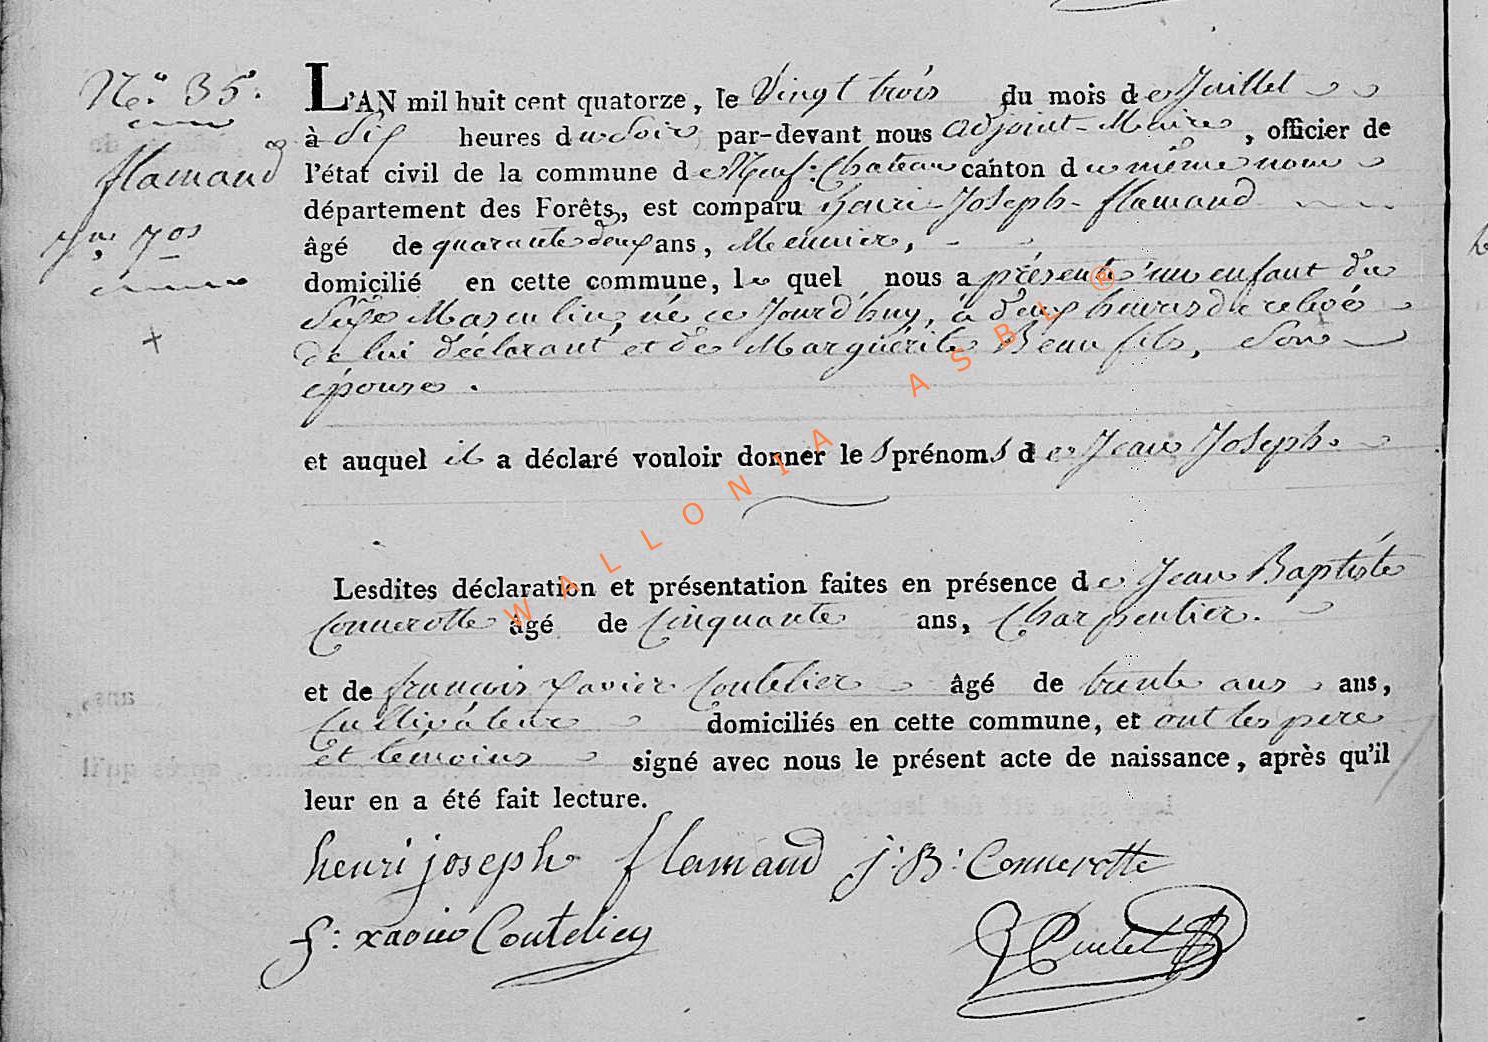 N.° 35.
flamand
Jn. Jos
L'AN mil huit cent quatorze, le Vingt trois du mois de Juillet
à Six heures du Soir par-devant nous adjoint-Maire, officier de
l'état civil de la commune de Neuf-Chateau canton du même nom
département des Forêts, est comparu henri-Joseph-flamand
âgé de quarante deux ans, Meunier,
domicilié en cette commune, le quel nous a présenté un enfant du
Sexe Masculin, né ce Jourd'huy, à deux heures de relevé
de lui déclarant et de Marguérite Beaufils, Son
épouse.
et auquel il a déclaré vouloir donner les prénoms de Jean Joseph.
Lesdites déclaration et présentation faites en présence de Jean Baptiste
Connerotte âgé de Cinquante ans, Charpentier.
et de françois Xavier Coutelier âgé de trente ans ans,
Cultivateur domiciliés en cette commune, et ont les pere
et temoins signé avec nous le présent acte de naissance, après qu'il
leur en a été fait lecture.
henri joseph flamand J: B: Connerotte
f: xavier Coutelier
WALLONIA ASBL ®